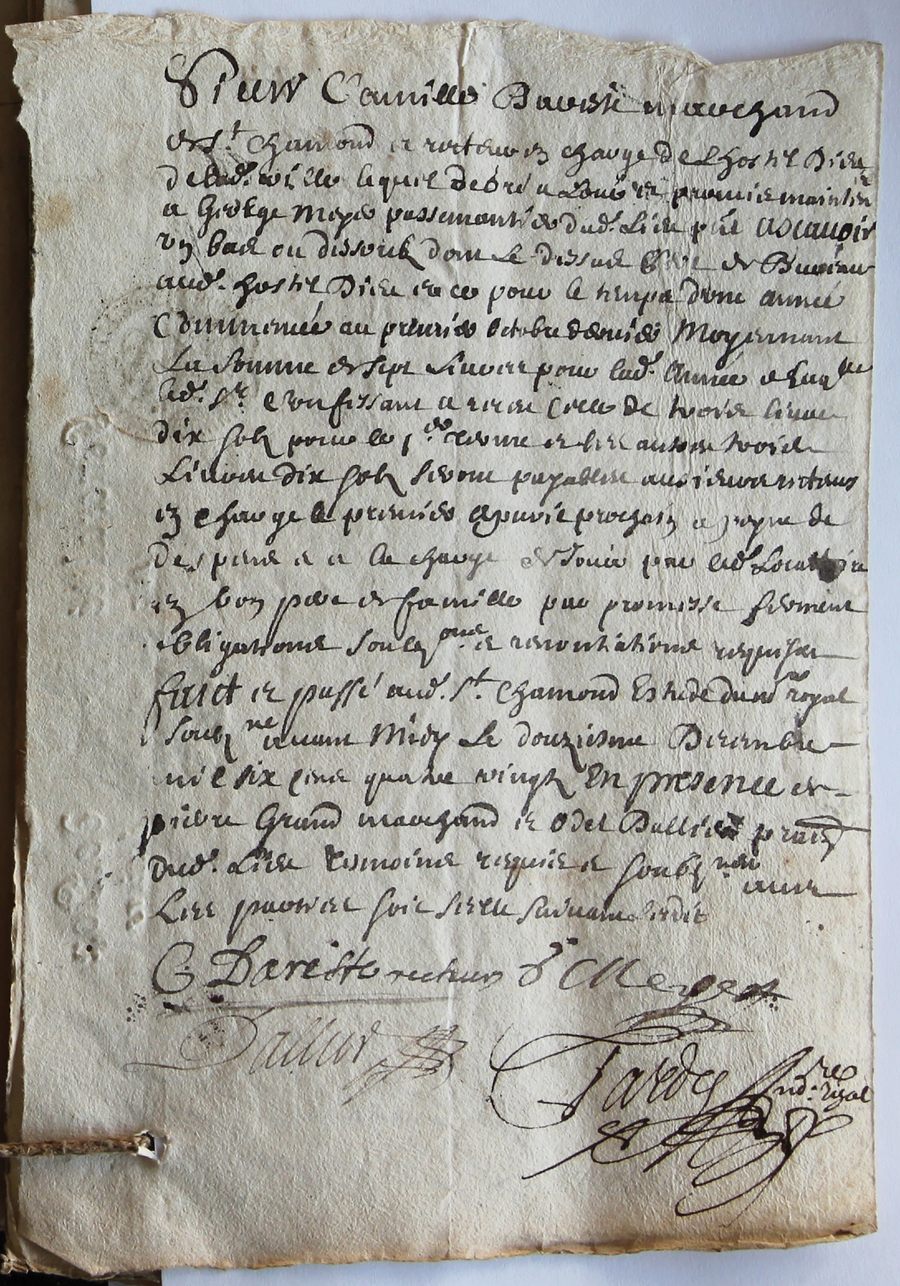 Sieur Camille Dareste marchand
de St. Chamond et recteur en charge de Lhostel Dieu
de lad. ville lequel de gré a Loué et promis maintenir
a George Meyer passemantier dud. Lieu pnt ascavoir
un bas ou dissoulz dont le dessus est et
aud. hostel Dieu et ce pour le temps dune année
Commencée au premier octobre dernier Moyennant
La somme de sept Livres pour lad. Année
led. Sr. Confessant avoir receu de trois livres
dix solz pour le et les autres trois
Livres dix solz seront payables aux sieurs recteurs
en charge le premier prochain a peyne de
despens et a la charge de jouir par led. Locataire
en bon pere de famille par promesse serment
obligations soubzons et renontiations requises
faict et passé aud. St. Chamond Estude du nore royal
soubzne avant Midy Le douziesme Decembre
mil six cens quatre vingtz En presence de
pierre Grand marchand et Odet Dallier
dud. Lieu tesmoins requis et soubznes avec
Les parties soit seellé suivant Ledit
C Dareste recteur G Meyer
Dallier
Tardy nore royal